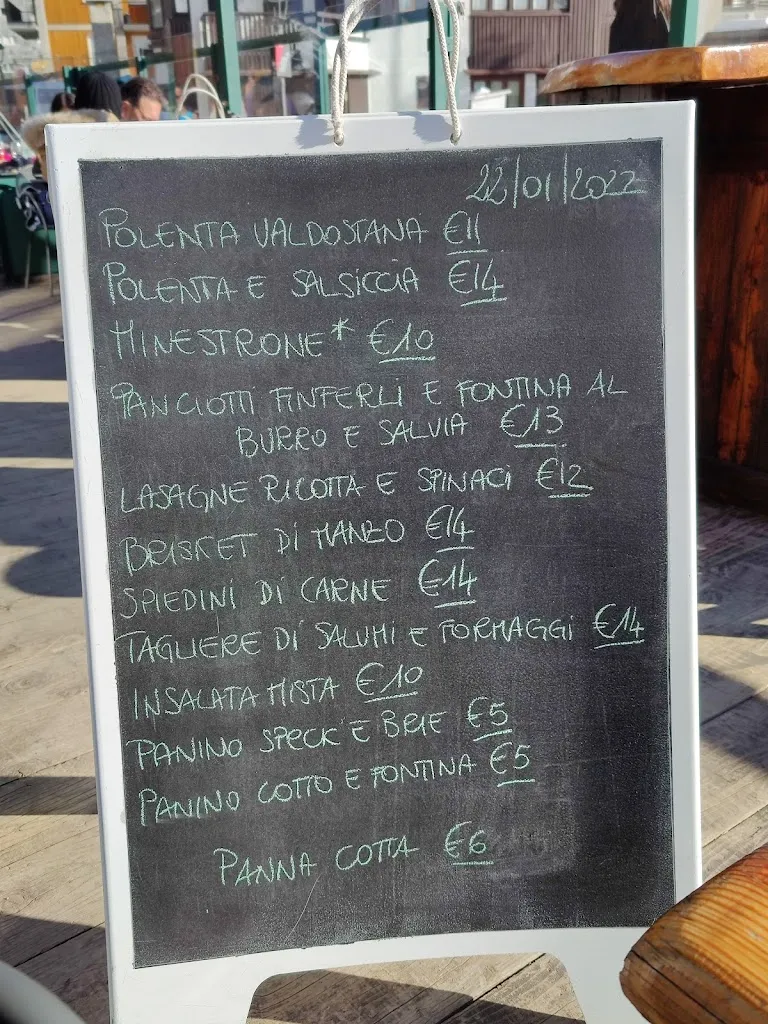 22/01/2022
POLENTA VALDOSTANA €11
POLENTA E SALSICCIA €14
MINESTRONE* €10
PANCIOTTI FINFERLI E FONTINA AL
BURRO E SALVIA €13
LASAGNE RICOTTA E SPINACI €12
BRISKET DI MANZO €14
SPIEDINI DI CARNE €14
TAGLIERE DI SALUMI E FORMAGGI €14
INSALATA MISTA €10
PANINO SPECK E BRIE €5
PANINO COTTO E FONTINA €5
PANNA COTTA €6